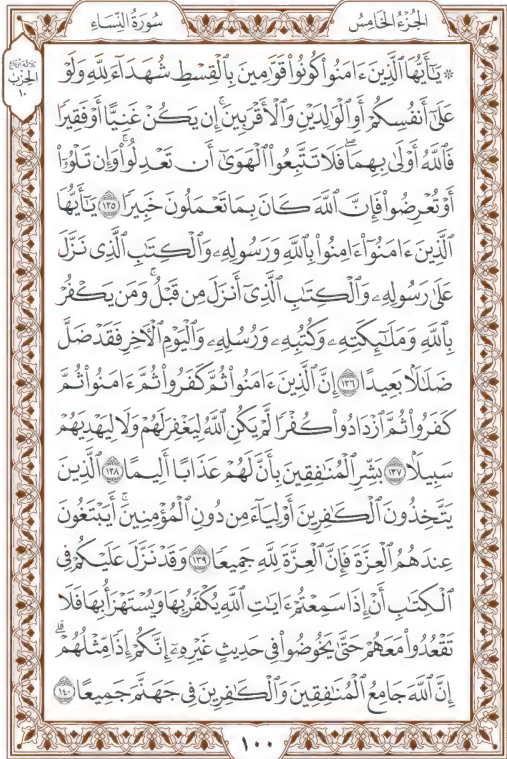 الجُزْءُ الخَامِسُ
سُورَةُ النِّسَاءِ
ثلاثة أرباع
الحِزْب
١٠
۞ يَٰٓأَيُّهَا ٱلَّذِينَ ءَامَنُواْ كُونُواْ قَوَّٰمِينَ بِٱلْقِسْطِ شُهَدَآءَ لِلَّهِ وَلَوْ
عَلَىٰٓ أَنفُسِكُمْ أَوِ ٱلْوَٰلِدَيْنِ وَٱلْأَقْرَبِينَۚ إِن يَكُنْ غَنِيًّا أَوْ فَقِيرًا
فَٱللَّهُ أَوْلَىٰ بِهِمَاۖ فَلَا تَتَّبِعُواْ ٱلْهَوَىٰٓ أَن تَعْدِلُواْۚ وَإِن تَلْوُۥٓاْ
أَوْ تُعْرِضُواْ فَإِنَّ ٱللَّهَ كَانَ بِمَا تَعْمَلُونَ خَبِيرًا ١٣٥ يَٰٓأَيُّهَا
ٱلَّذِينَ ءَامَنُوٓاْ ءَامِنُواْ بِٱللَّهِ وَرَسُولِهِۦ وَٱلْكِتَٰبِ ٱلَّذِى نَزَّلَ
عَلَىٰ رَسُولِهِۦ وَٱلْكِتَٰبِ ٱلَّذِىٓ أَنزَلَ مِن قَبْلُۚ وَمَن يَكْفُرْ
بِٱللَّهِ وَمَلَٰٓئِكَتِهِۦ وَكُتُبِهِۦ وَرُسُلِهِۦ وَٱلْيَوْمِ ٱلْأٓخِرِ فَقَدْ ضَلَّ
ضَلَٰلًۢا بَعِيدًا ١٣٦ إِنَّ ٱلَّذِينَ ءَامَنُواْ ثُمَّ كَفَرُواْ ثُمَّ ءَامَنُواْ ثُمَّ
كَفَرُواْ ثُمَّ ٱزْدَادُواْ كُفْرًا لَّمْ يَكُنِ ٱللَّهُ لِيَغْفِرَ لَهُمْ وَلَا لِيَهْدِيَهُمْ
سَبِيلًۢا ١٣٧ بَشِّرِ ٱلْمُنَٰفِقِينَ بِأَنَّ لَهُمْ عَذَابًا أَلِيمًا ١٣٨ ٱلَّذِينَ
يَتَّخِذُونَ ٱلْكَٰفِرِينَ أَوْلِيَآءَ مِن دُونِ ٱلْمُؤْمِنِينَۚ أَيَبْتَغُونَ
عِندَهُمُ ٱلْعِزَّةَ فَإِنَّ ٱلْعِزَّةَ لِلَّهِ جَمِيعًا ١٣٩ وَقَدْ نَزَّلَ عَلَيْكُمْ فِى
ٱلْكِتَٰبِ أَنْ إِذَا سَمِعْتُمْ ءَايَٰتِ ٱللَّهِ يُكْفَرُ بِهَا وَيُسْتَهْزَأُ بِهَا فَلَا
تَقْعُدُواْ مَعَهُمْ حَتَّىٰ يَخُوضُواْ فِى حَدِيثٍ غَيْرِهِۦٓ إِنَّكُمْ إِذًا مِّثْلُهُمْۗ
إِنَّ ٱللَّهَ جَامِعُ ٱلْمُنَٰفِقِينَ وَٱلْكَٰفِرِينَ فِى جَهَنَّمَ جَمِيعًا ١٤٠
١٠٠